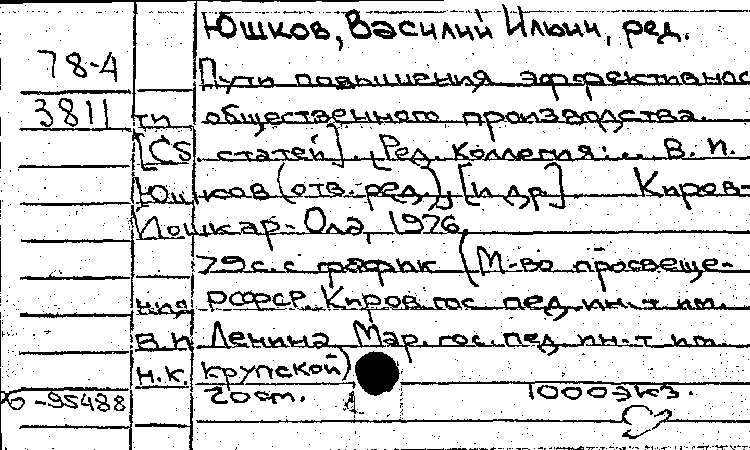 Юшков, Василий Ильич, ред.
78-4
Пути повышения эффективнос
3811 ти общественного производства.
[Сб. статей]. [Ред. коллегия: ... В. И.
Юшков (отв. ред.), [и др]. Киров-
Йошкар-Ола, 1976.
79 с. с график (М-во просвеще-
ния РСФСР. Киров гос. пед. ин-т им.
В.И. Ленина, Мар. гос. пед. ин-т им.
Н.К. Крупской)
б-95488 20 ст. 1000 экз.